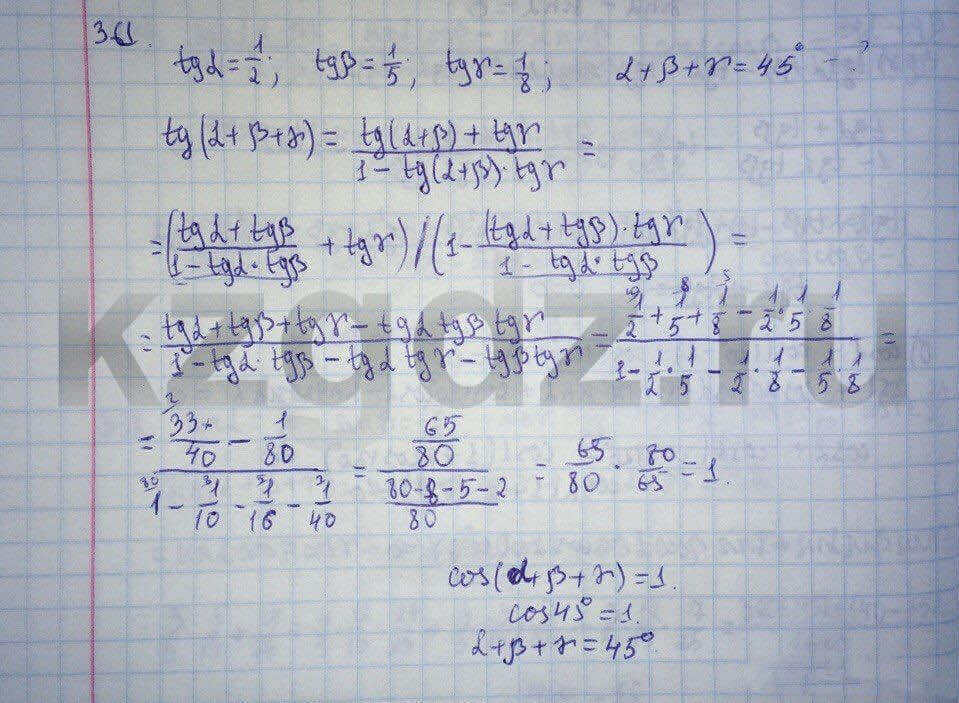 361.
tgα = 1/2; tgβ = 1/5; tgγ = 1/8; α+β+γ = 45° - ?
tg(α+β+γ) = (tg(α+β) + tgγ)/(1 - tg(α+β)·tgγ) =
= ((tgα + tgβ)/(1 - tgα·tgβ) + tgγ) / (1 - ((tgα + tgβ)·tgγ)/(1 - tgα·tgβ)) =
= (tgα + tgβ + tgγ - tgα tgβ tgγ)/(1 - tgα·tgβ - tgα tgγ - tgβ tgγ) = (1/2 + 1/5 + 1/8 - 1/2·1/5·1/8)/(1 - 1/2·1/5 - 1/2·1/8 - 1/5·1/8) =
= (33/40 - 1/80)/(1 - 1/10 - 1/16 - 1/40) = (65/80)/((80-8-5-2)/80) = 65/80 · 80/65 = 1.
cos(α+β+γ) = 1.
cos45° = 1.
α+β+γ = 45°
kzgdz.ru